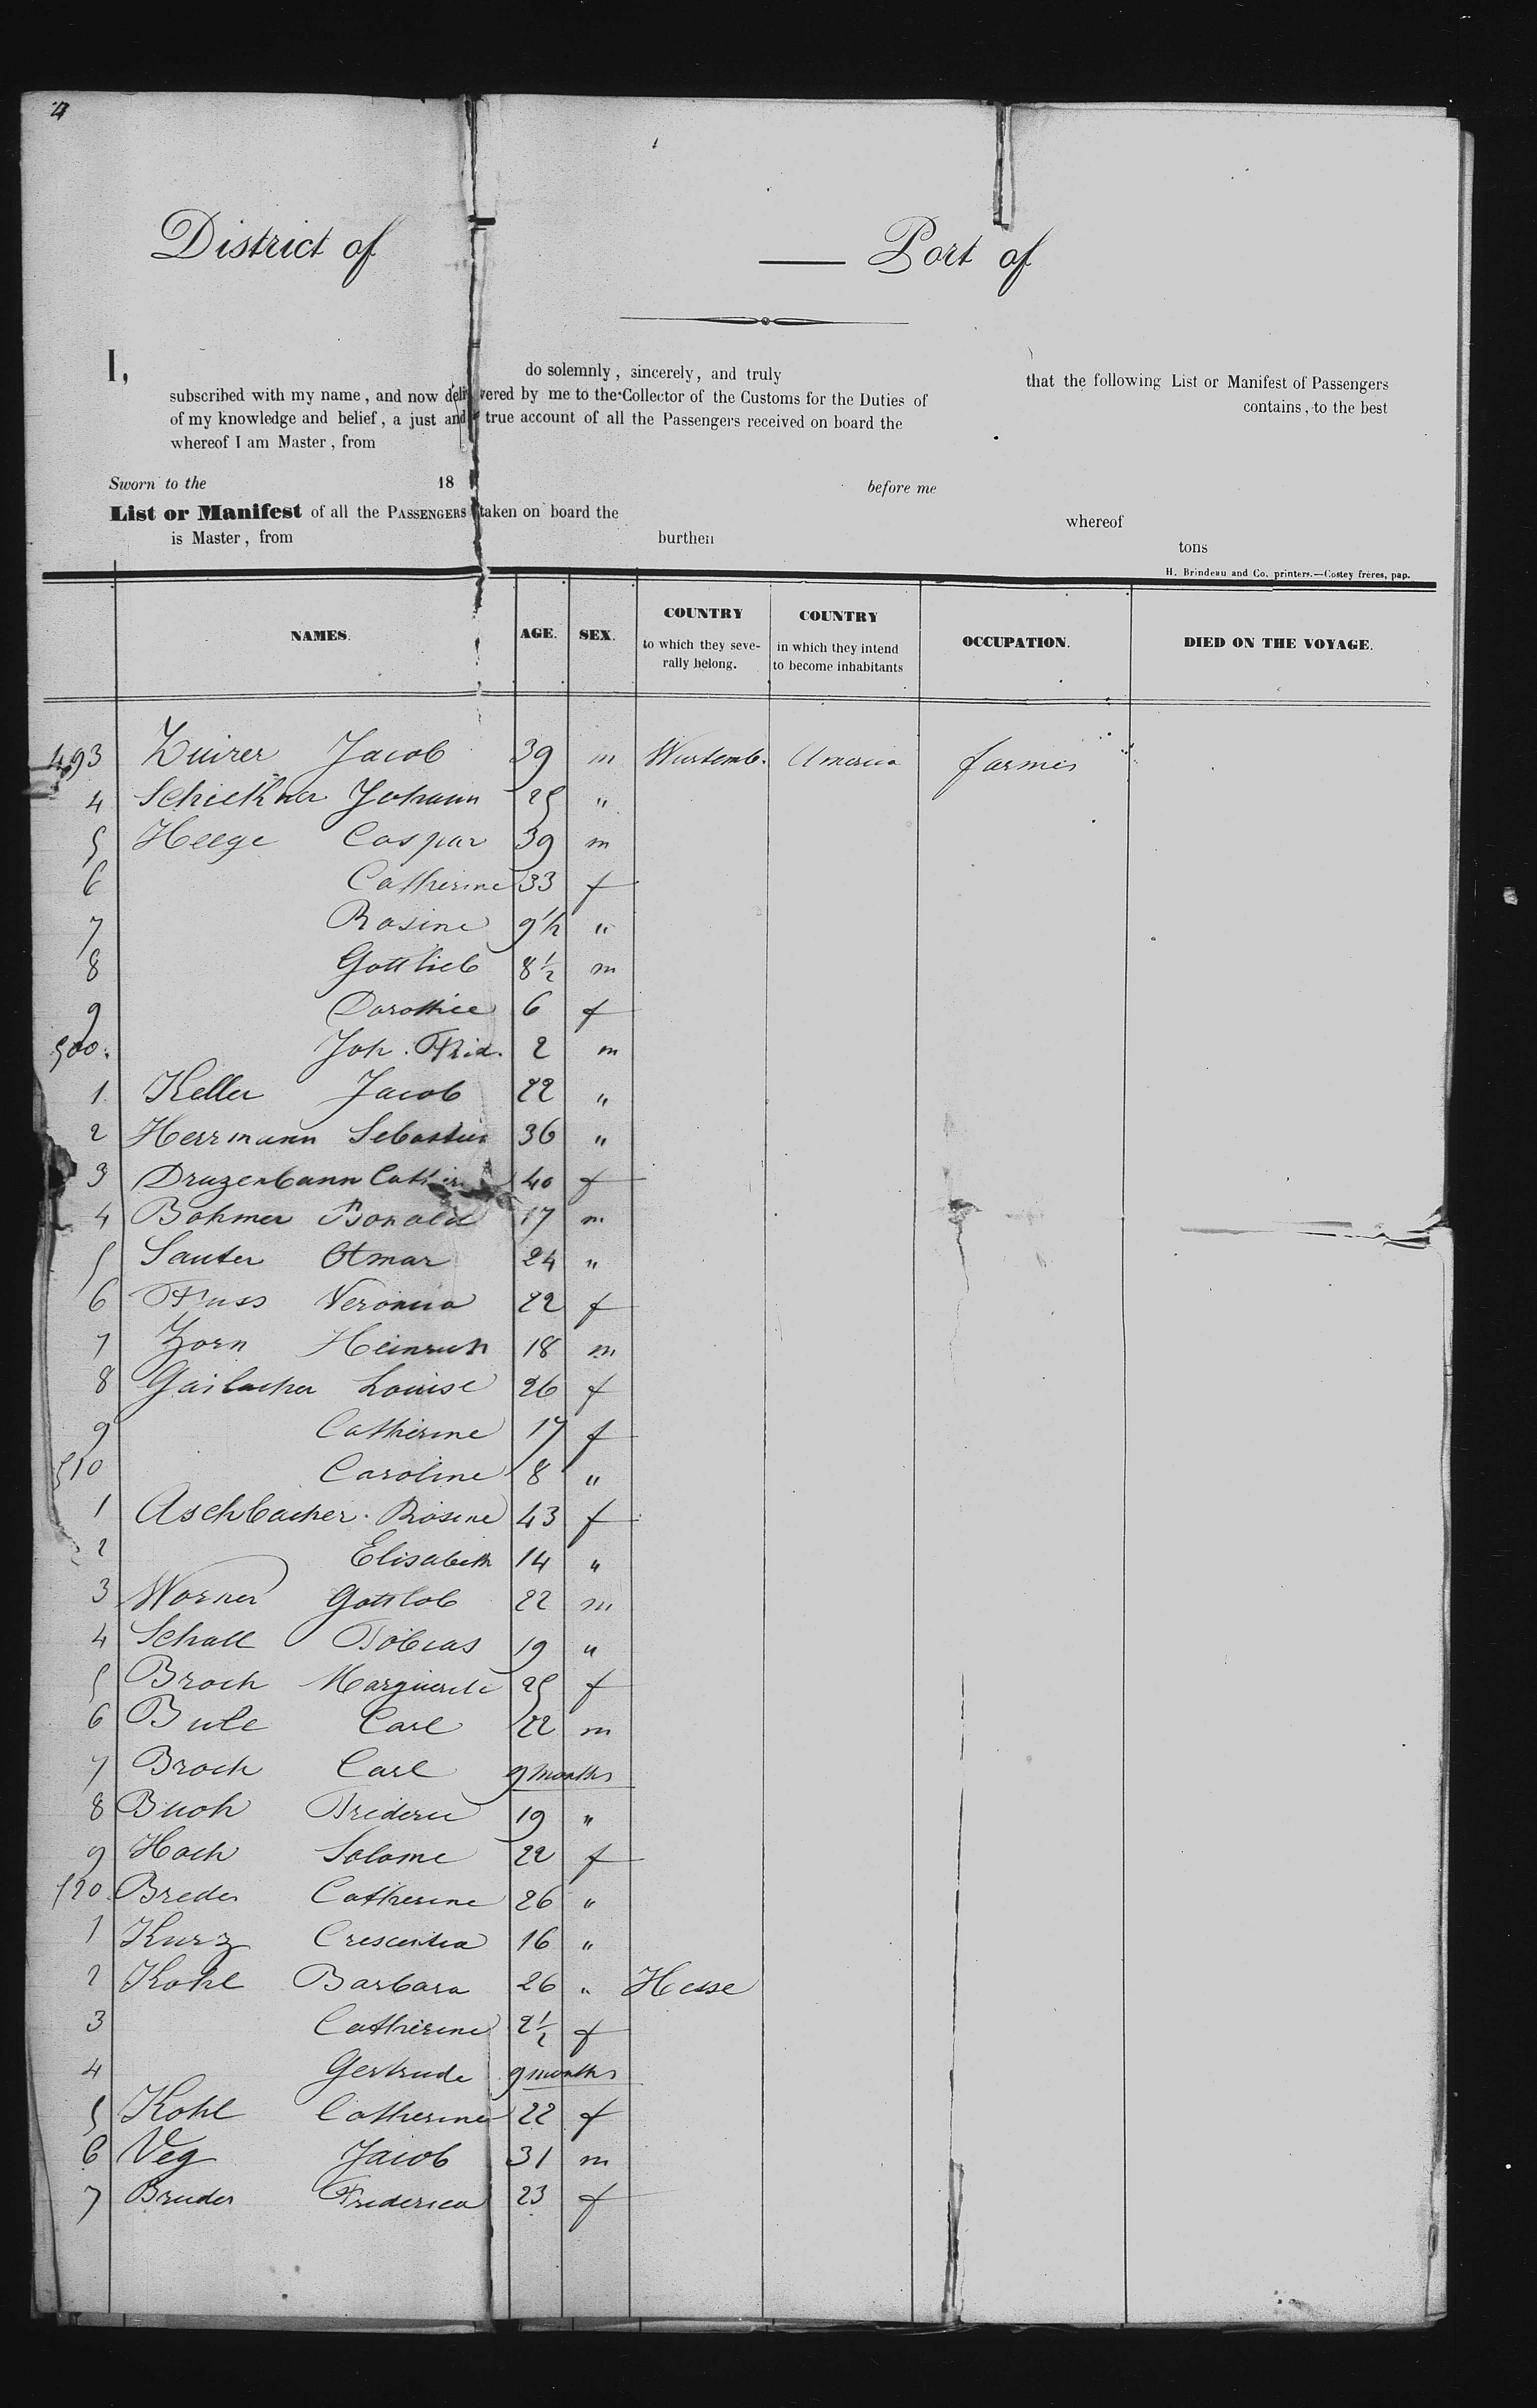 4
District of
Port of
I,
do solemnly, sincerely, and truly
that the following List or Manifest of Passengers
subscribed with my name, and now delivered by me to the Collector of the Customs for the Duties of
contains, to the best
of my knowledge and belief, a just and true account of all the Passengers received on board the
whereof I am Master, from
Sworn to the 18 before me
List or Manifest of all the PASSENGERS taken on board the whereof
is Master, from burthen tons
H. Brindeau and Co. printers.—Costey frères, pap.
NAMES. AGE. SEX. COUNTRY to which they severally belong. COUNTRY in which they intend to become inhabitants OCCUPATION. DIED ON THE VOYAGE.
493 Jacob 39 m Wurtemb. America farmer
4 Schickner Johann 25 "
5 Heege Caspar 39 m
6 Catherine 33 f
7 Rosine 9 1/2 "
8 Gottlieb 8 1/2 m
9 Dorothee 6 f
500. Joh. Frid. 2 m
1 Keller Jacob 22 "
2 Herrmann Sebastian 36 "
3 40 f
4 Bohmer Ronald 17 m
5 Sauter Otmar 24 "
6 Fuss Veronica 22 f
7 Zorn Heinrich 18 m
8 Gailacher Louise 26 f
9 Catherine 17 f
510 Caroline 8 "
1 Aschbacher. Rosine 43 f
2 Elisabeth 14 "
3 Worner Gottlob 22 m
4 Schall Tobias 19 "
5 Broch Marguerite 25 f
6 Carl 22 m
7 Broch Carl 9 months
8 Buoh Frideric 19 "
9 Hoch Salome 22 f
520 Breder Catherine 26 "
1 Kurz Crescentia 16 "
2 Kohl Barbara 26 " Hesse
3 Catherine 2 1/2 f
4 Gertrude 9 months
5 Kohl Catherine 22 f
6 Veg Jacob 31 m
7 Bruder Frederica 23 f